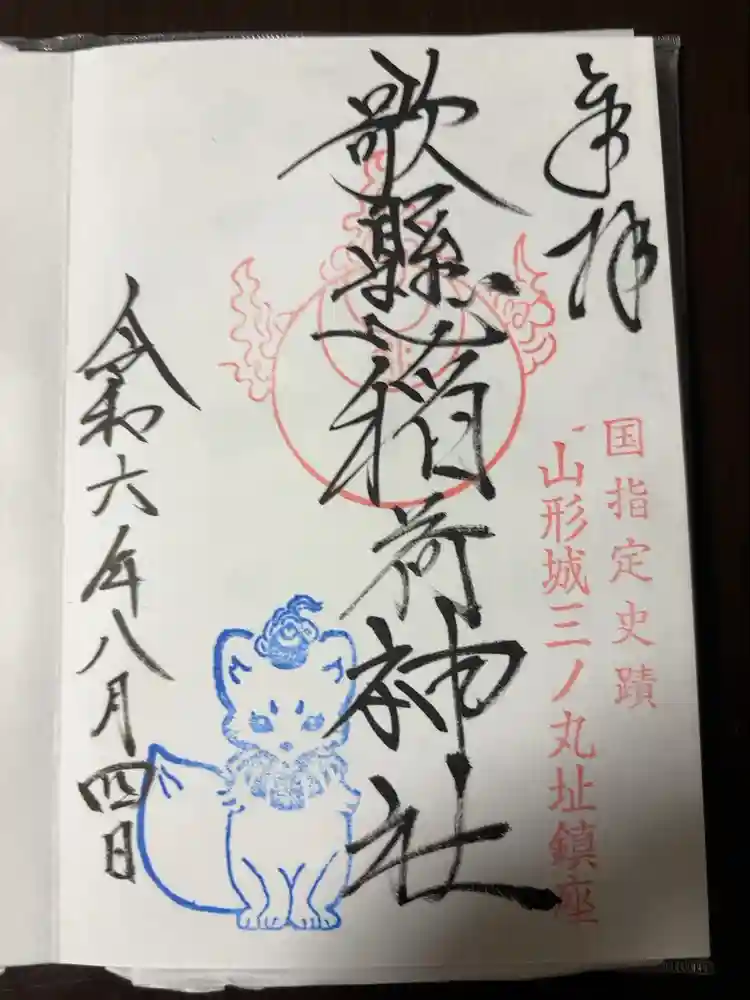 奉拝
国指定史蹟
山形城三ノ丸址鎮座
歌懸稲荷神社
令和六年八月四日